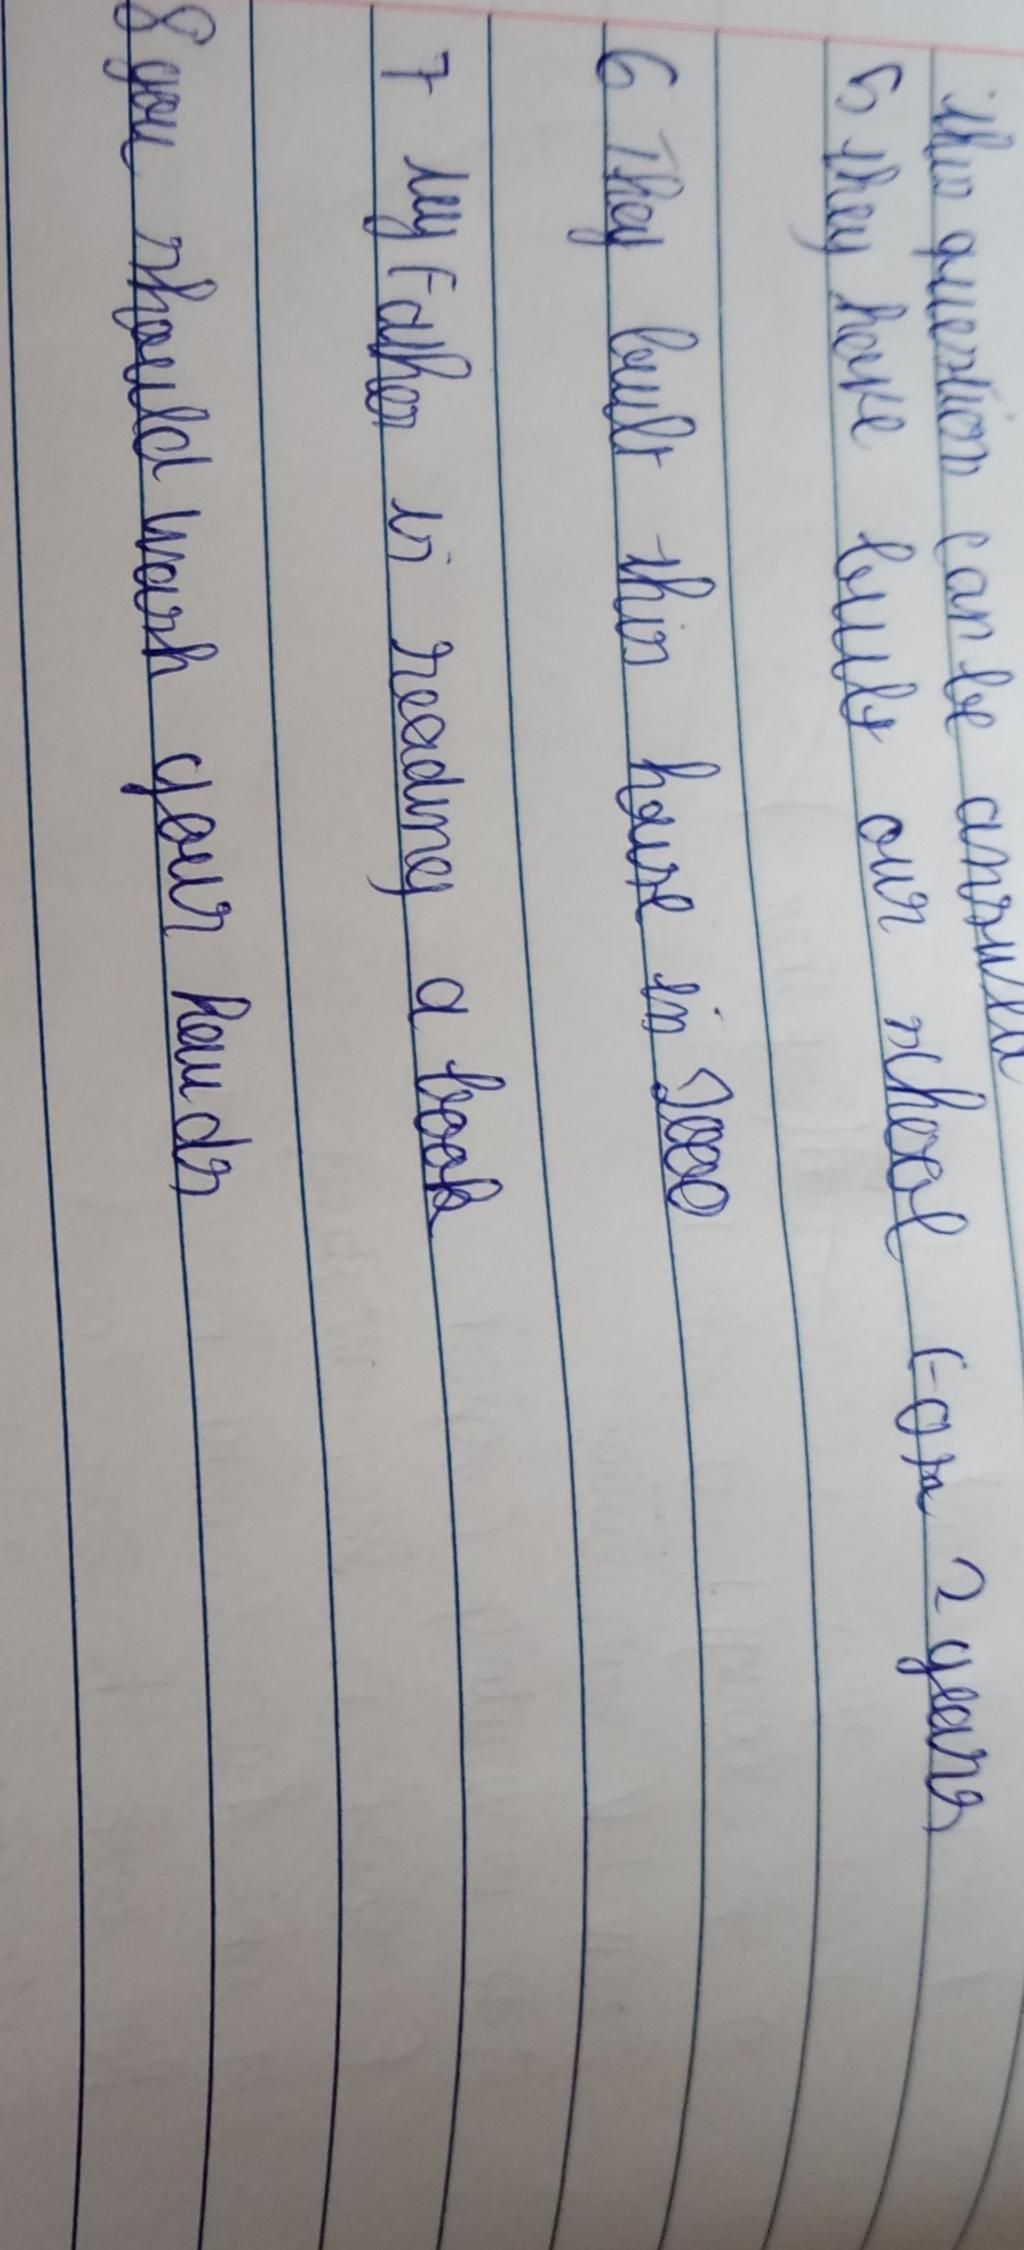 this question can be
5 they have built our school for 2 years
6 They built this house in 2000
7 my Father is reading a book
8 you should wash your hands